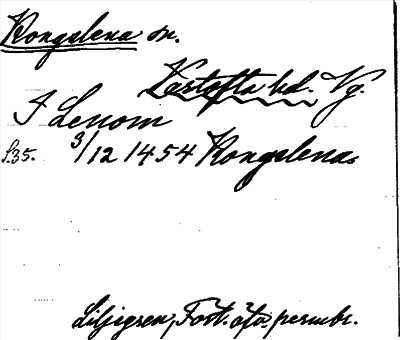 Kongslena sn.
Kastofta hd. Vg.
I Lenom
s.35. 3/12 1454 Kongslena.
Liljegren, Fort. öfv. permbr.